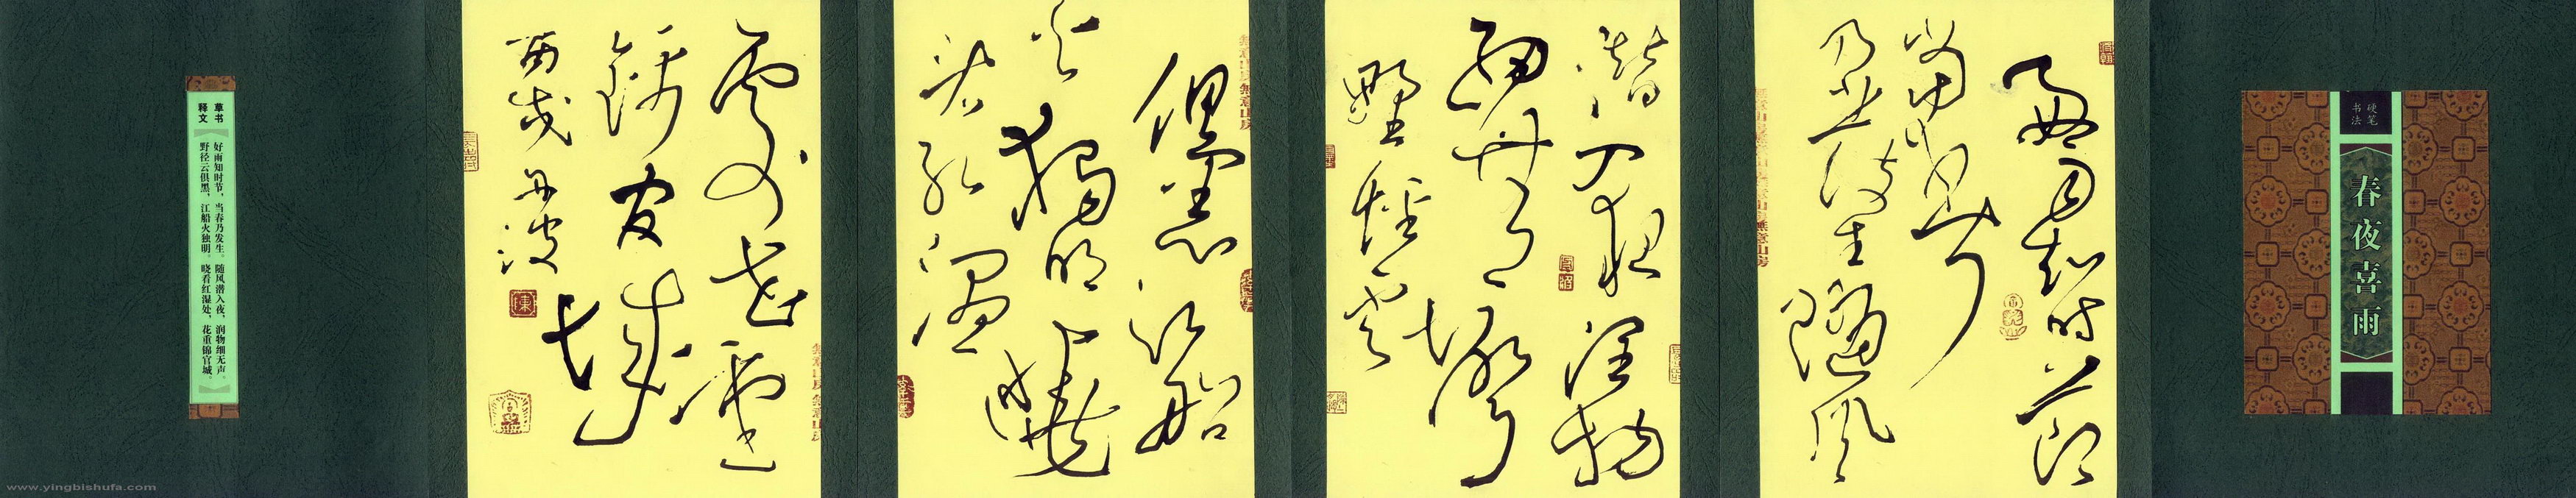 硬笔
书法
春夜喜雨
好雨知時節
當春
乃發生隨風
潛入夜潤物
細無聲
野徑雲
俱黑江船
火獨明曉
看紅濕
處花重
錦官城
丙戌
草书
释文
好雨知时节，当春乃发生。随风潜入夜，润物细无声。
野径云俱黑，江船火独明。晓看红湿处，花重锦官城。
www.yingbishufa.com